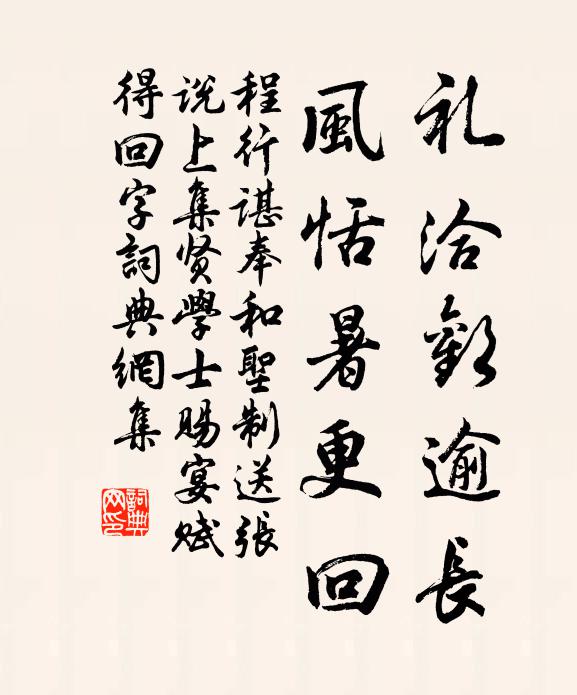 礼洽歡逾長
風恬暑更回
程行諶奉和聖制送張
说上集贤學士賜宴賦
得回字詞典網集
詞典网印